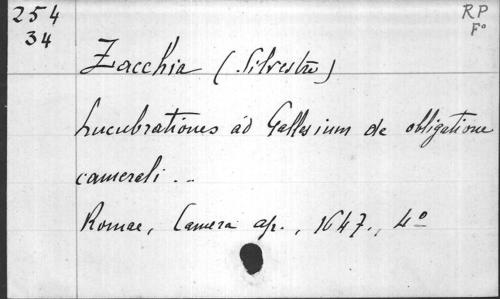 254
34
RP
Fº
Zacchia (Silvestro)
Lucubrationes ad Gallesium de obligatione
camerali ..
Romae, Camera ap., 1647., 4º